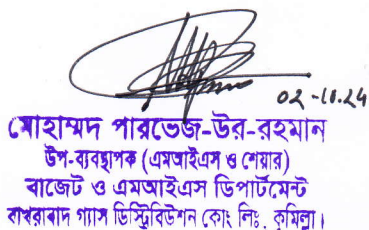 02-10.24
মোহাম্মদ পারভেজ-উর-রহমান
উপ-ব্যবস্থাপক (এমআইএস ও শেয়ার)
বাজেট ও এমআইএস ডিপার্টমেন্ট
বাখরাবাদ গ্যাস ডিস্ট্রিবিউশন কোং লিঃ, কুমিল্লা।